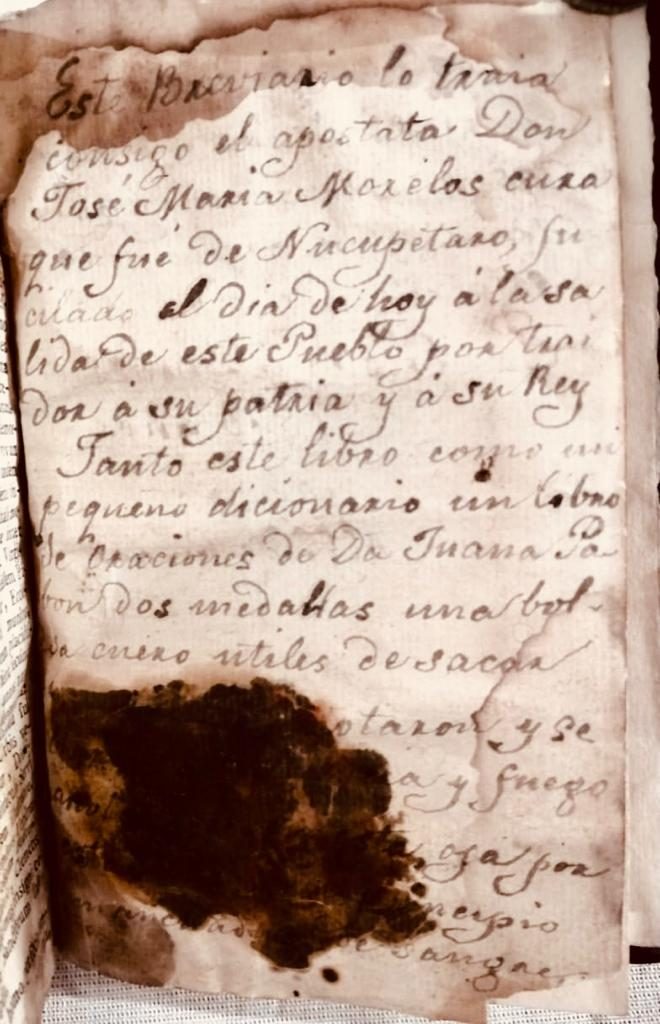 Este Breviario lo traia
consigo el apostata Don
José Maria Morelos cura
que fué de Nucupetaro, fu
cilado el dia de hoy á la sa
lida de este Pueblo por trai
dor á su patria y á su Rey
Tanto este libro como un
pequeno dicionario un libro
de oraciones de Da Juana Pa-
bon dos medallas una bol-
sa cuero utiles de sacar
y se
y fuego
por
de sangre